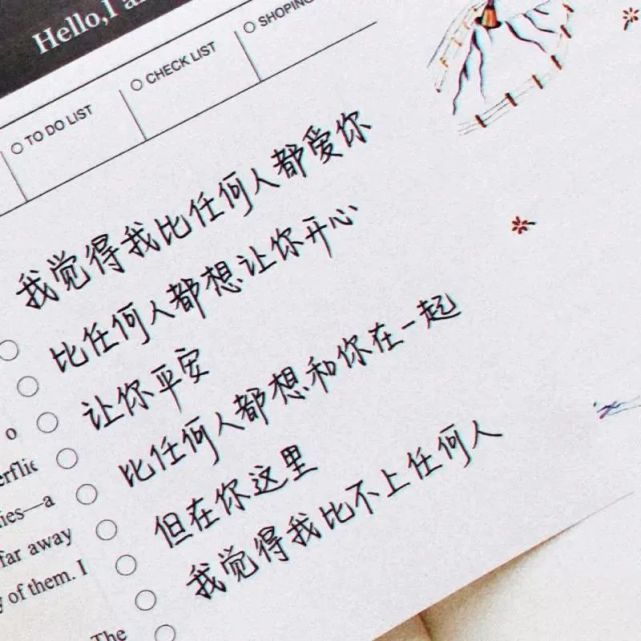 Hello, I a
TO DO LIST
CHECK LIST
SHOPING
我觉得我比任何人都爱你
比任何人都想让你开心
让你平安
比任何人都想和你在一起
但在你这里
我觉得我比不上任何人
o
erflie
ies—a
far away
y of them. I
The